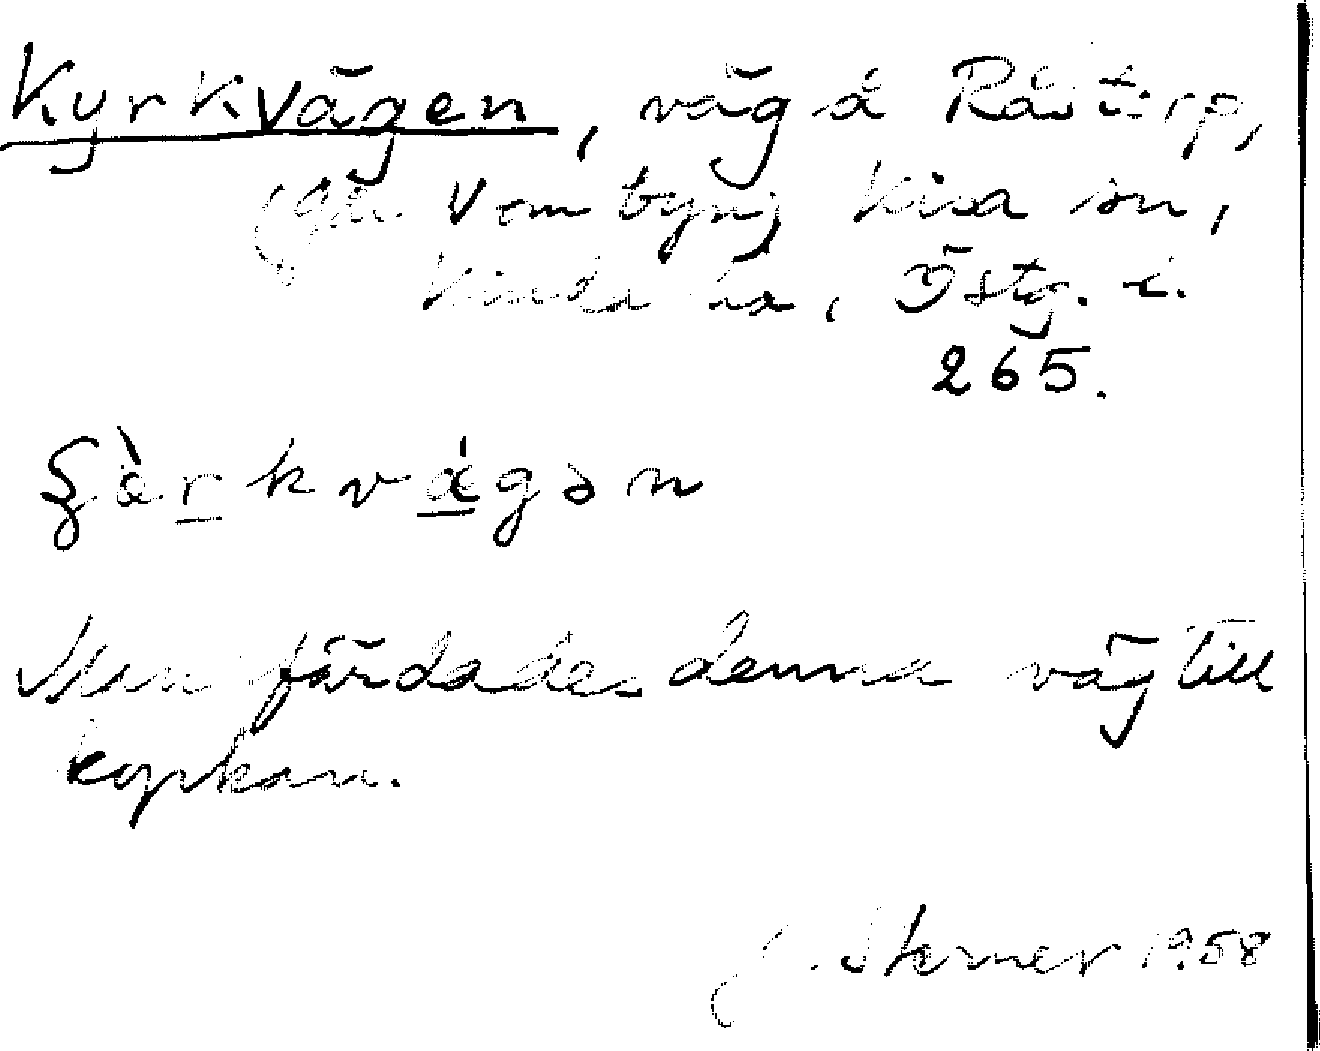 Kyrkvägen, väg å Råstorp,
(går V om byn) Kisa sn,
Kinda hd, Östg. l.
265.
kvägən
Man färdades denna väg till
kyrkan.
J. Sterner 1958